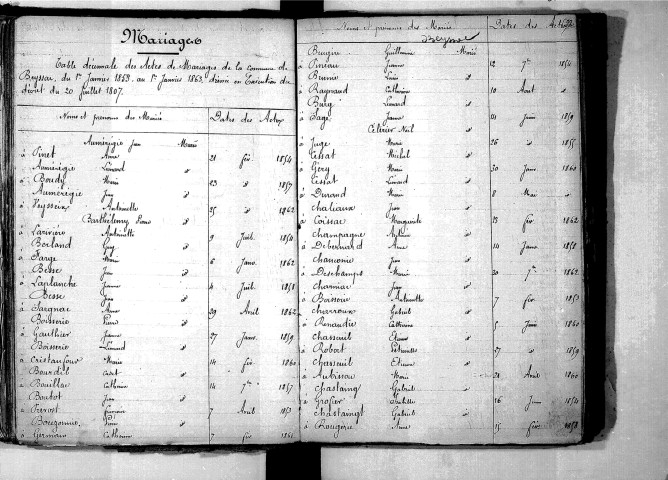 Mariages
Table décennale des Actes de Mariages de la commune de
Beyssac, du 1er Janvier 1853, au 1er Janvier 1863, dressée en Exécution du
décret du 20 Juillet 1807.
Noms et prénoms des Mariés Dates des Actes
Aumérégie Jean Marié
à Pinet Anne 21 fév. 1854
Aumérégie Léonard d
à Boudy Marie 23 d 1857
Aumérégie Jean d
à Veysseix Antoinette 25 d 1862
Barthélemy Louis d
à Larivière Antoinette 9 Juil. 1854
Borland Guy d
à Farge Marie 6 Janv. 1862
Besse Jean d
à Laplanche Jeanne 4 Juil. 1858
Besse Jean d
à Sargnac Anne 29 Avril 1862
Boisserie Pierre d
à Gauthier Jeanne 27 Janv. 1859
Boisserie Léonard d
à Cristaufour Marie 14 fév. 1860
Bourdel d
à Bouillac Catherine 14 1857
Boutot Jean d
à 7 Avril 1853
Bouzonnie d
à Germain Catherine 7 fév. 1861
Noms et prénoms des Mariés Dates des Actes
Beyssac
Bruzine Guillaume Marié
à Piniau Jeanne 12 7bre 1854
Brunie Louis d
à Raynaud Catherine 10 Août d
Burg Léonard d
à Sage Jeanne 21 Juin 1859
Célérier Noël d
à Juge Marie 26 d 1855
Cessat Michel d
à Géry Marie 30 Janv. 1860
Cessat Léonard d
à Durand Marie 8 Mai d
Chaliaux Jean d
à Coissac Marguerite 13 fév. 1862
Champagne d
à Debernard Anne 14 Janv. 1858
Chanconie Jean d
à Deschamps Marie 20 1862
Charniac Jean d
à Boisserie Antoinette 7 fév. 1853
Charroux Gabriel d
à Renaudie Catherine 5 Juin 1860
Chasseuil Etienne d
à Robert Pétronille 27 d 1859
Chasseuil Etienne d
à Aubissou Marie 28 Avril 1860
Chastaing Gabriel d
à Grosier 16 1854
Chastaingt Gabriel d
à Rougerie Anne 15 fév. 1858